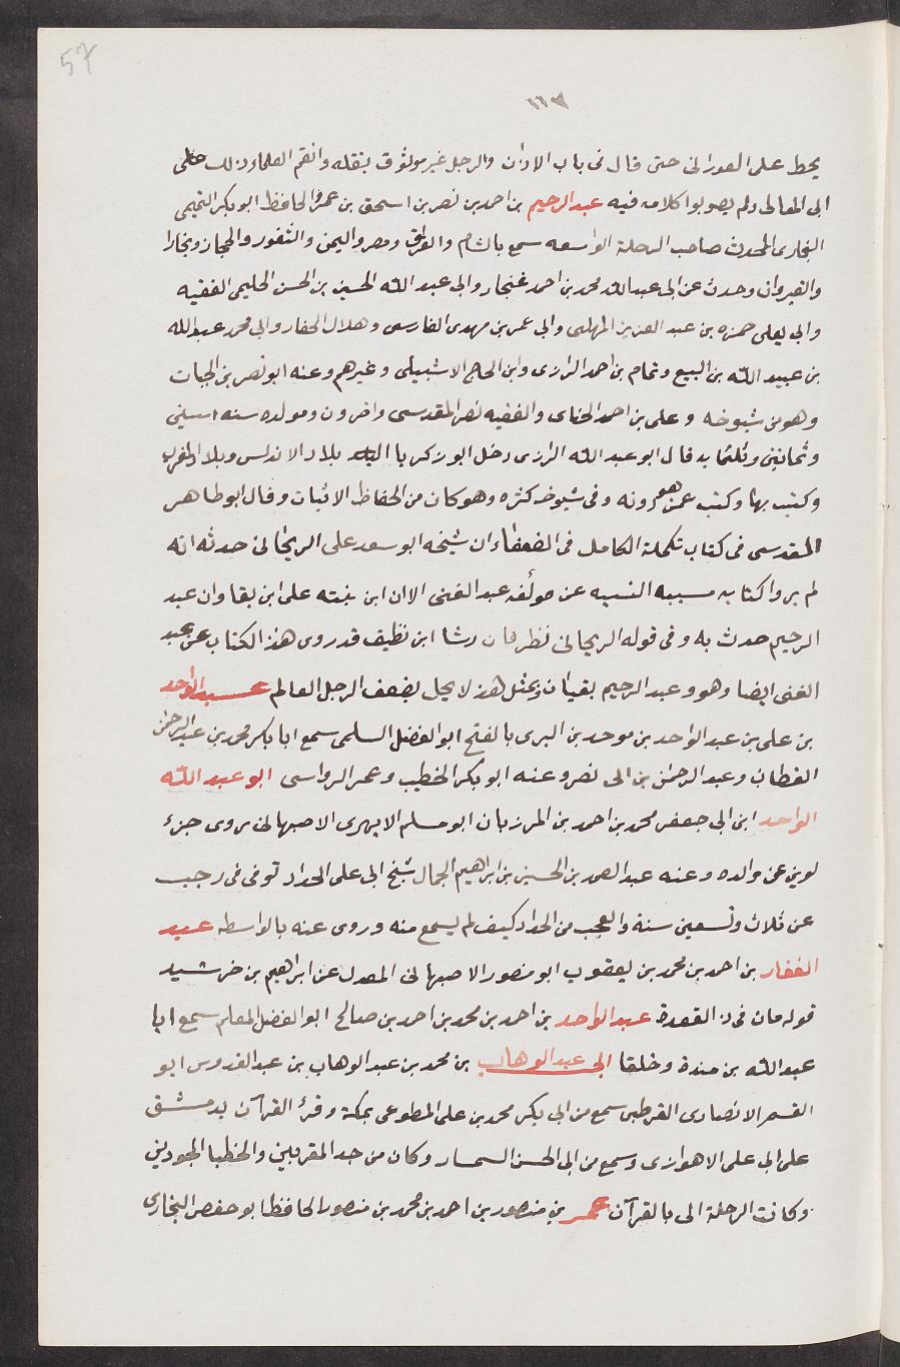 57
١١٣
يحط على الفورانى حتى قال فى باب الاذان والرجل غير موثوق بنقله وانقم العلماء ذلك على
ابى المعالى ولم يصوبوا كلامه فيه عبد الرحيم بن احمد بن نصر بن اسحق بن عمرو الحافظ ابو بكر التميمى
البخارى المحدث صاحب الرحلة الواسعه سمع بالشام والعراق ومصر واليمن والثغور والحجاز وبخارا
والقيروان وحدث عن ابى عبد الله محمد بن احمد غنجار وابى عبد الله الحسين بن الحسن الحليمى الفقيه
وابى يعلى حمزه بن عبد العزيز المهلبى وابى عمر بن مهدى الفارسى وهلال الحفار وابى محمد عبد الله
بن عبيد الله بن البيع وتمام بن احمد الرازى وابن الحاج الاشبيلى وغيرهم وعنه ابو نصر بن الجبان
وهو من شيوخه وعلى بن احمد الحناى والفقيه نصر المقدسى واخرون ومولده سنه اسنى
وثمانين وثلثمايه قال ابو عبد الله الرازى دخل ابو زكريا بلاد الاندلس وبلاد المغرب
وكتب بها وكتب عمن هو دونه وفى شيوخه كثره وهو كان من الحفاظ الاثبات وقال ابو طاهر
المقدسى فى كتاب تكملة الكامل فى الضعفاء ان شيخه ابو سعد على الريحانى حدثه انه
لم يروا كتاب مسببه النسبه عن مولفه عبد الغنى الا ان ابن بنته على ابن بقا وان عبد
الرحيم حدث به وفى قوله الريحانى نظر فان رشا ابن نظيف قد روى هذا الكتاب عن عبد
الغنى ايضا وهو وعبد الرحيم بقيا وبمثل هذا لا يحل بضعف الرجل العالم عبد الواحد
بن على بن عبد الواحد بن موحد بن البرى بالفتح ابو الفضل السلمى سمع ابا بكر محمد بن عبد الرحمن
القطان وعبد الرحمن بن ابى نصر وعنه ابو بكر الخطيب وعمر الرواسى ابو عبد الله
الواحد ابن ابى جعفر محمد بن احمد بن المرزبان ابو مسلم الابهرى الاصبهانى يروى جزء
لوين عن والده وعنه عبد الصمد بن الحسين بن ابراهيم الجمال شيخ ابى على الحداد توفى فى رجب
عن ثلاث وتسعين سنة والعجب من الحداد كيف لم يسمع منه وروى عنه بالواسطه عبد
الغفار بن احمد بن محمد بن يعقوب ابو منصور الاصبهانى المعدل عن ابراهيم بن خرشيد
قوله مات فى ذ القعدة عبد الواحد بن احمد بن محمد بن احمد بن صالح ابو الفضل المعلم سمع ابا
عبد الله بن مندة وخلقا ابى عبد الوهاب بن محمد بن عبد الوهاب بن عبد القدوس ابو
القسم الانصارى القرطبى سمع من ابى بكر محمد بن على المطوعى بمكة وقرأ القرآن بدمشق
على ابى على الاهوازى وسمع من ابى الحسن السمسار وكان من جد المقربين والخطبا المجودين
وكانت الرحلة الى بالقرآن عمر بن منصور بن احمد بن محمد بن منصور الحافظ ابو حفص البخارى